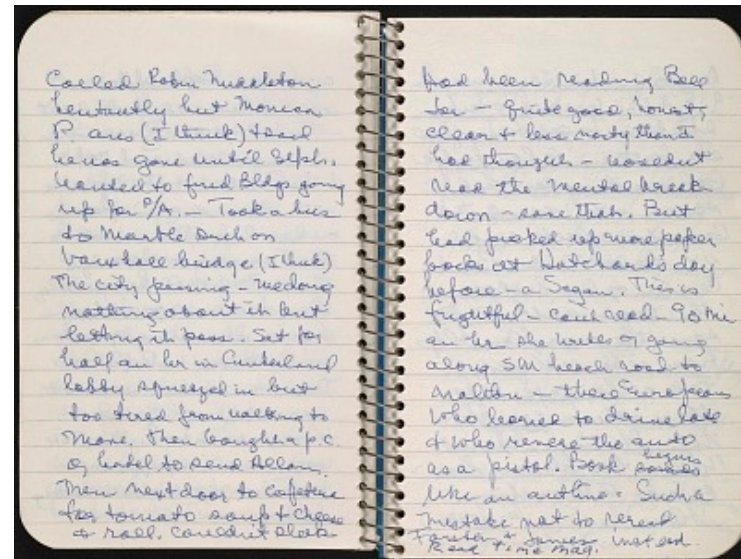 Called Robin Middleton
hesitantly but Monica
P. ans (I think) + said
he was gone until Sept.
Wanted to find Bldgs going
up for P/A. — Took a bus
to Marble Arch on
Vauxhall bridge (I think)
The city passing — me doing
nothing about it but
letting it pass. Sat for
half an hr in Cumberland
lobby squeezed in but
too tired from walking to
move. Then bought a p.c.
of hotel to send Allan.
Then next door to cafeteria
for tomato soup + cheese
+ roll. Couldn't
Had been reading Bell
Jar — quite good, honest,
clear + less nasty than I
had thought — wouldn't
read the mental break
down — save that. But
had picked up more paper
backs at Hatchards day
before — a Sagan. This is
frightful — can't read — 90 mi
an hr she writes of going
along SM beach road to
Malibu — these Europeans
who learned to drive late
+ who revere the auto
as a pistol. Book begins
like an outline. Such a
mistake not to reread
Forster + James instead.
Read Time Mag.